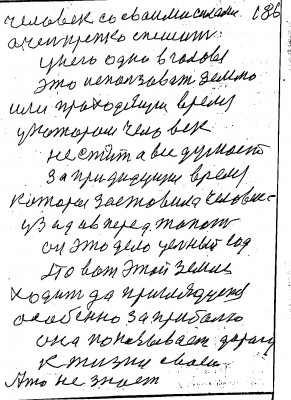 человек со своими силами 186
очен крепко спешит
у него одно в голове
это использоват землю
или проходящии время
у котором человек
не спит а все думает
за придидущи время
которая заставила человек
из ада вперед топат
он это дело ценный год
Што вот этой земле
ходит да приглядуеця
особенно за прибалю
она показывает дорогу
к жизни своей
А то не знает